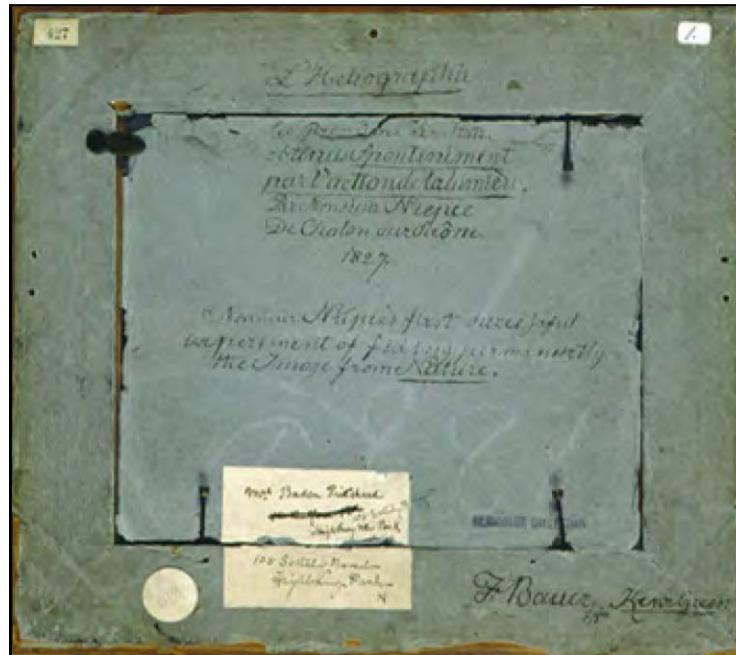 427
1.
L'Heliographie
Les premiers résultats
obtenus Spontanément
par l'action de la lumière.
Par Monsieur Niepce
De Chalon sur Saône.
1827.
Monsieur Niepce's first successful
experiment of fixing permanently
the Image from Nature.
Mrs Baden Pritchard
Highbury New Park
108 Sotheby Road
Highbury Park
N
GERNSHEIM COLLECTION
F. Bauer Kew Green